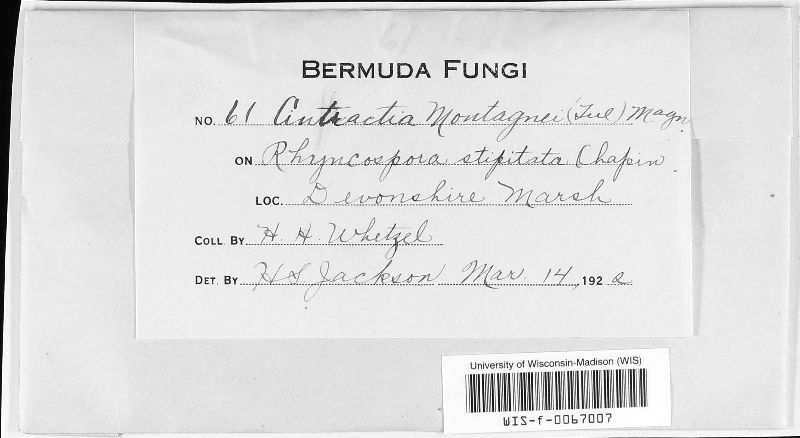 BERMUDA FUNGI
NO. 61 Cintractia Montagnei (Tul) Magn
ON Rhyncospora stipitata Chapin.
LOC. Devonshire Marsh
COLL. BY H H Whetzel
DET. BY H S Jackson Mar. 14, 192
University of Wisconsin-Madison (WIS)
WIS-f-0067007